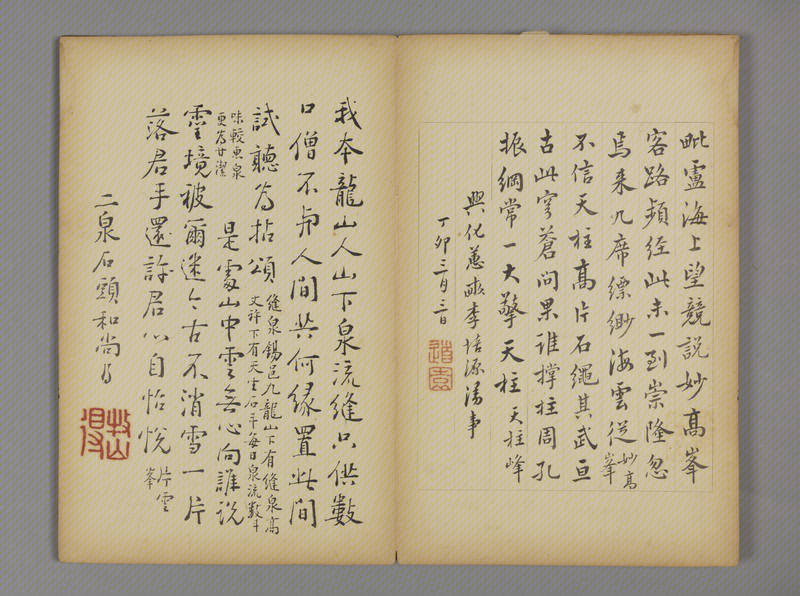 毗盧海上望競說妙高峯
客路頻經此未一到崇隆忽
焉来几席縹緲海雲從妙高峯
不信天柱高片石繩其武亘
古此穹蒼問果誰撐柱周孔
振綱常一大擎天柱天柱峰
興化李培源漫事
丁卯三月三日
道園
我本龍山人山下泉流縫只供數
口僧不與人間共何緣置此間
試聽為拈頌縫泉錫邑九龍山下有縫泉高
丈許下有天生石平每日泉流數斗
味較惠泉
更為甘潔
是處山中雲無心向誰說
靈境被爾迷今古不消雪一片
落君手還許君心自怡悅片雲峯
二泉石頭和尚